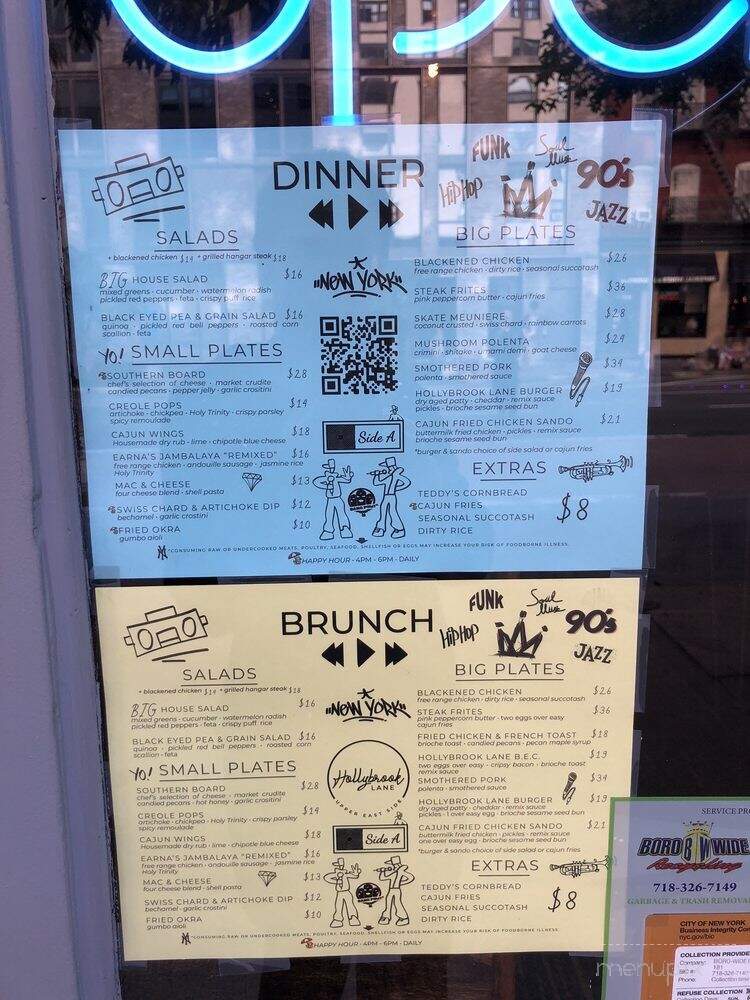 DINNER
FUNK
Soul Music
HipHop
90's
JAZZ
SALADS
+ blackened chicken $14 + grilled hangar steak $18
BIG HOUSE SALAD $16
mixed greens • cucumber • watermelon radish
pickled red peppers • feta • crispy puff rice
BLACK EYED PEA & GRAIN SALAD $16
quinoa • pickled red bell peppers • roasted corn
scallion • feta
YO! SMALL PLATES
SOUTHERN BOARD $28
chef's selection of cheese • market crudite
candied pecans • pepper jelly • garlic crostini
CREOLE POPS $14
artichoke • chickpea • Holy Trinity • crispy parsley
spicy remoulade
CAJUN WINGS $18
Housemade dry rub • lime • chipotle blue cheese
EARNA'S JAMBALAYA "REMIXED" $16
free range chicken • andouille sausage • jasmine rice
Holy Trinity
MAC & CHEESE $13
four cheese blend • shell pasta
SWISS CHARD & ARTICHOKE DIP $12
bechamel • garlic crostini
FRIED OKRA $10
gumbo aioli
"NEW YORK"
Side A
BIG PLATES
BLACKENED CHICKEN $26
free range chicken • dirty rice • seasonal succotash
STEAK FRITES $36
pink peppercorn butter • cajun fries
SKATE MEUNIERE $28
coconut crusted • swiss chard • rainbow carrots
MUSHROOM POLENTA $24
crimini • shitake • umami demi • goat cheese
SMOTHERED PORK $34
polenta • smothered sauce
HOLLYBROOK LANE BURGER $19
dry aged patty • cheddar • remix sauce
pickles • brioche sesame seed bun
CAJUN FRIED CHICKEN SANDO $21
buttermilk fried chicken • pickles • remix sauce
brioche sesame seed bun
*burger & sando choice of side salad or cajun fries
EXTRAS
TEDDY'S CORNBREAD
CAJUN FRIES
SEASONAL SUCCOTASH
DIRTY RICE
$8
*CONSUMING RAW OR UNDERCOOKED MEATS, POULTRY, SEAFOOD, SHELLFISH OR EGGS MAY INCREASE YOUR RISK OF FOODBORNE ILLNESS.
HAPPY HOUR • 4PM - 6PM • DAILY
BRUNCH
FUNK
Soul Music
HipHop
90's
JAZZ
SALADS
+ blackened chicken $14 + grilled hangar steak $18
BIG HOUSE SALAD $16
mixed greens • cucumber • watermelon radish
pickled red peppers • feta • crispy puff rice
BLACK EYED PEA & GRAIN SALAD $16
quinoa • pickled red bell peppers • roasted corn
scallion • feta
YO! SMALL PLATES
SOUTHERN BOARD $28
chef's selection of cheese • market crudite
candied pecans • hot honey • garlic crostini
CREOLE POPS $14
artichoke • chickpea • Holy Trinity • crispy parsley
spicy remoulade
CAJUN WINGS $18
Housemade dry rub • lime • chipotle blue cheese
EARNA'S JAMBALAYA "REMIXED" $16
free range chicken • andouille sausage • jasmine rice
Holy Trinity
MAC & CHEESE $13
four cheese blend • shell pasta
SWISS CHARD & ARTICHOKE DIP $12
bechamel • garlic crostini
FRIED OKRA $10
gumbo aioli
"NEW YORK"
Hollybrook
LANE
UPPER EAST SIDE
Side A
BIG PLATES
BLACKENED CHICKEN $26
free range chicken • dirty rice • seasonal succotash
STEAK FRITES $36
pink peppercorn butter • two eggs over easy
cajun fries
FRIED CHICKEN & FRENCH TOAST $18
brioche toast • candied pecans • pecan maple syrup
HOLLYBROOK LANE B.E.C. $19
two eggs over easy • cripsy bacon • brioche toast
remix sauce
SMOTHERED PORK $34
polenta • smothered sauce
HOLLYBROOK LANE BURGER $19
dry aged patty • cheddar • remix sauce
pickles • 1 over easy egg • brioche sesame seed bun
CAJUN FRIED CHICKEN SANDO $21
buttermilk fried chicken • pickles • remix sauce
one over easy egg • brioche sesame seed bun
*burger & sando choice of side salad or cajun fries
EXTRAS
TEDDY'S CORNBREAD
CAJUN FRIES
SEASONAL SUCCOTASH
DIRTY RICE
$8
*CONSUMING RAW OR UNDERCOOKED MEATS, POULTRY, SEAFOOD, SHELLFISH OR EGGS MAY INCREASE YOUR RISK OF FOODBORNE ILLNESS.
HAPPY HOUR • 4PM - 6PM • DAILY
SERVICE
BORO WIDE
Recycling
718-326-7149
GARBAGE & TRASH REMOVA
CITY OF NEW YORK
Business Integrity Com
nyc.gov/bic
COLLECTION PROVIDE
Company:
BIC #:
Phone:
REFUSE COLLECTION
menupix